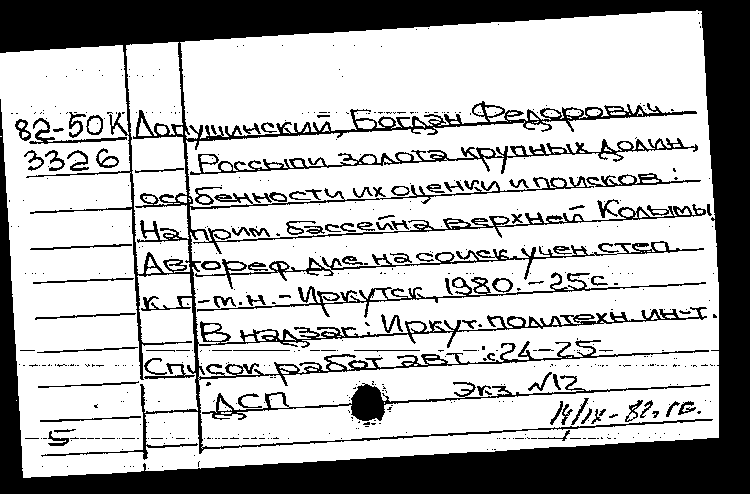 82-50К Лопушинский, Богдан Федорович.
3326 Россыпи золота крупных долин,
особенности их оценки и поисков:
На прим. бассейна верхней Колымы.
Автореф. дис. на соиск. учен. степ.
к. г.-м.н. - Иркутск, 1980. - 25с.
В надзаг.: Иркут. политехн. ин-т.
Список работ авт.: с24-25
ДСП Экз. №12
5 14/IX-82г.